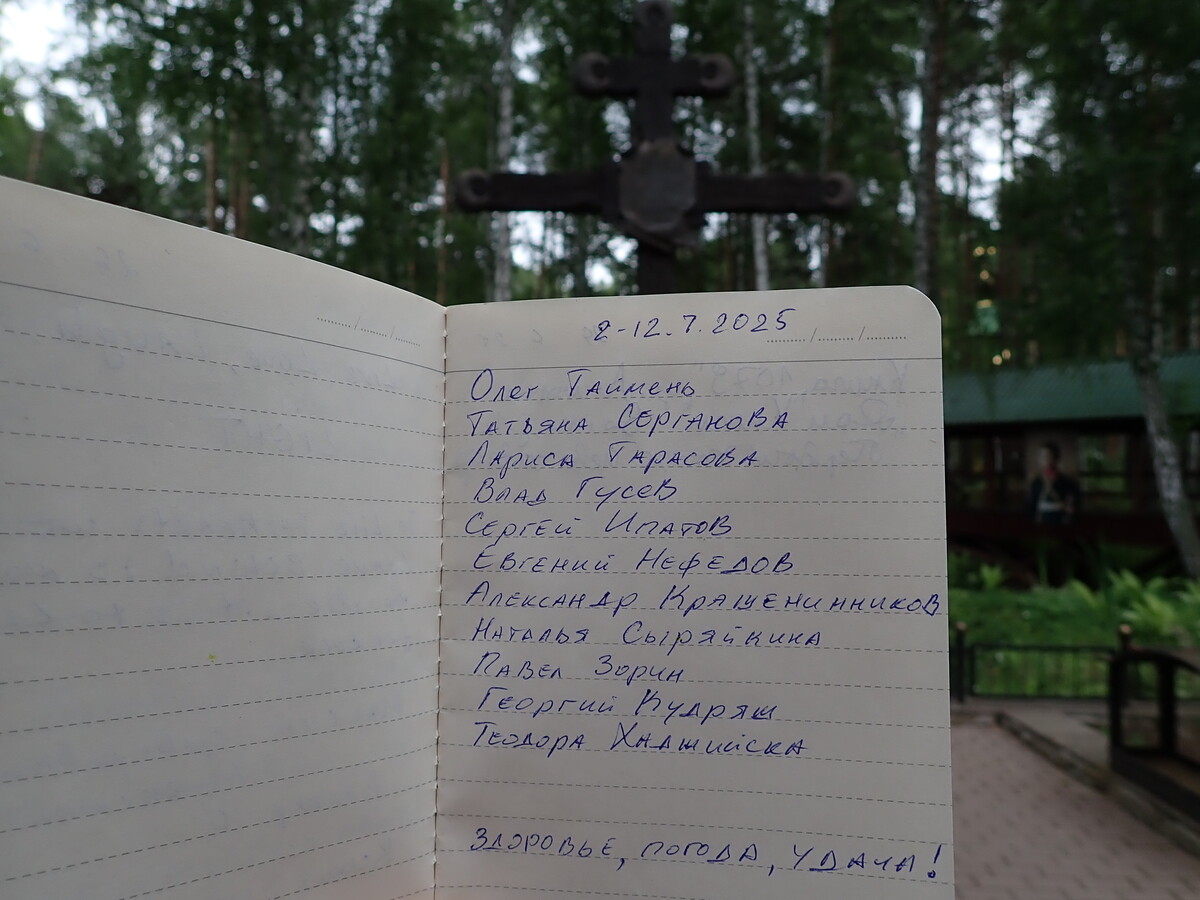 2-12.7.2025
Олег Таймень
Татьяна Серганова
Лариса Тарасова
Влад Гусев
Сергей Ипатов
Евгений Нефедов
Александр Крашенинников
Наталья Сыряйкина
Павел Зорин
Георгий Кудряш
Теодора Хаджийска
Здоровье, погода, удача!